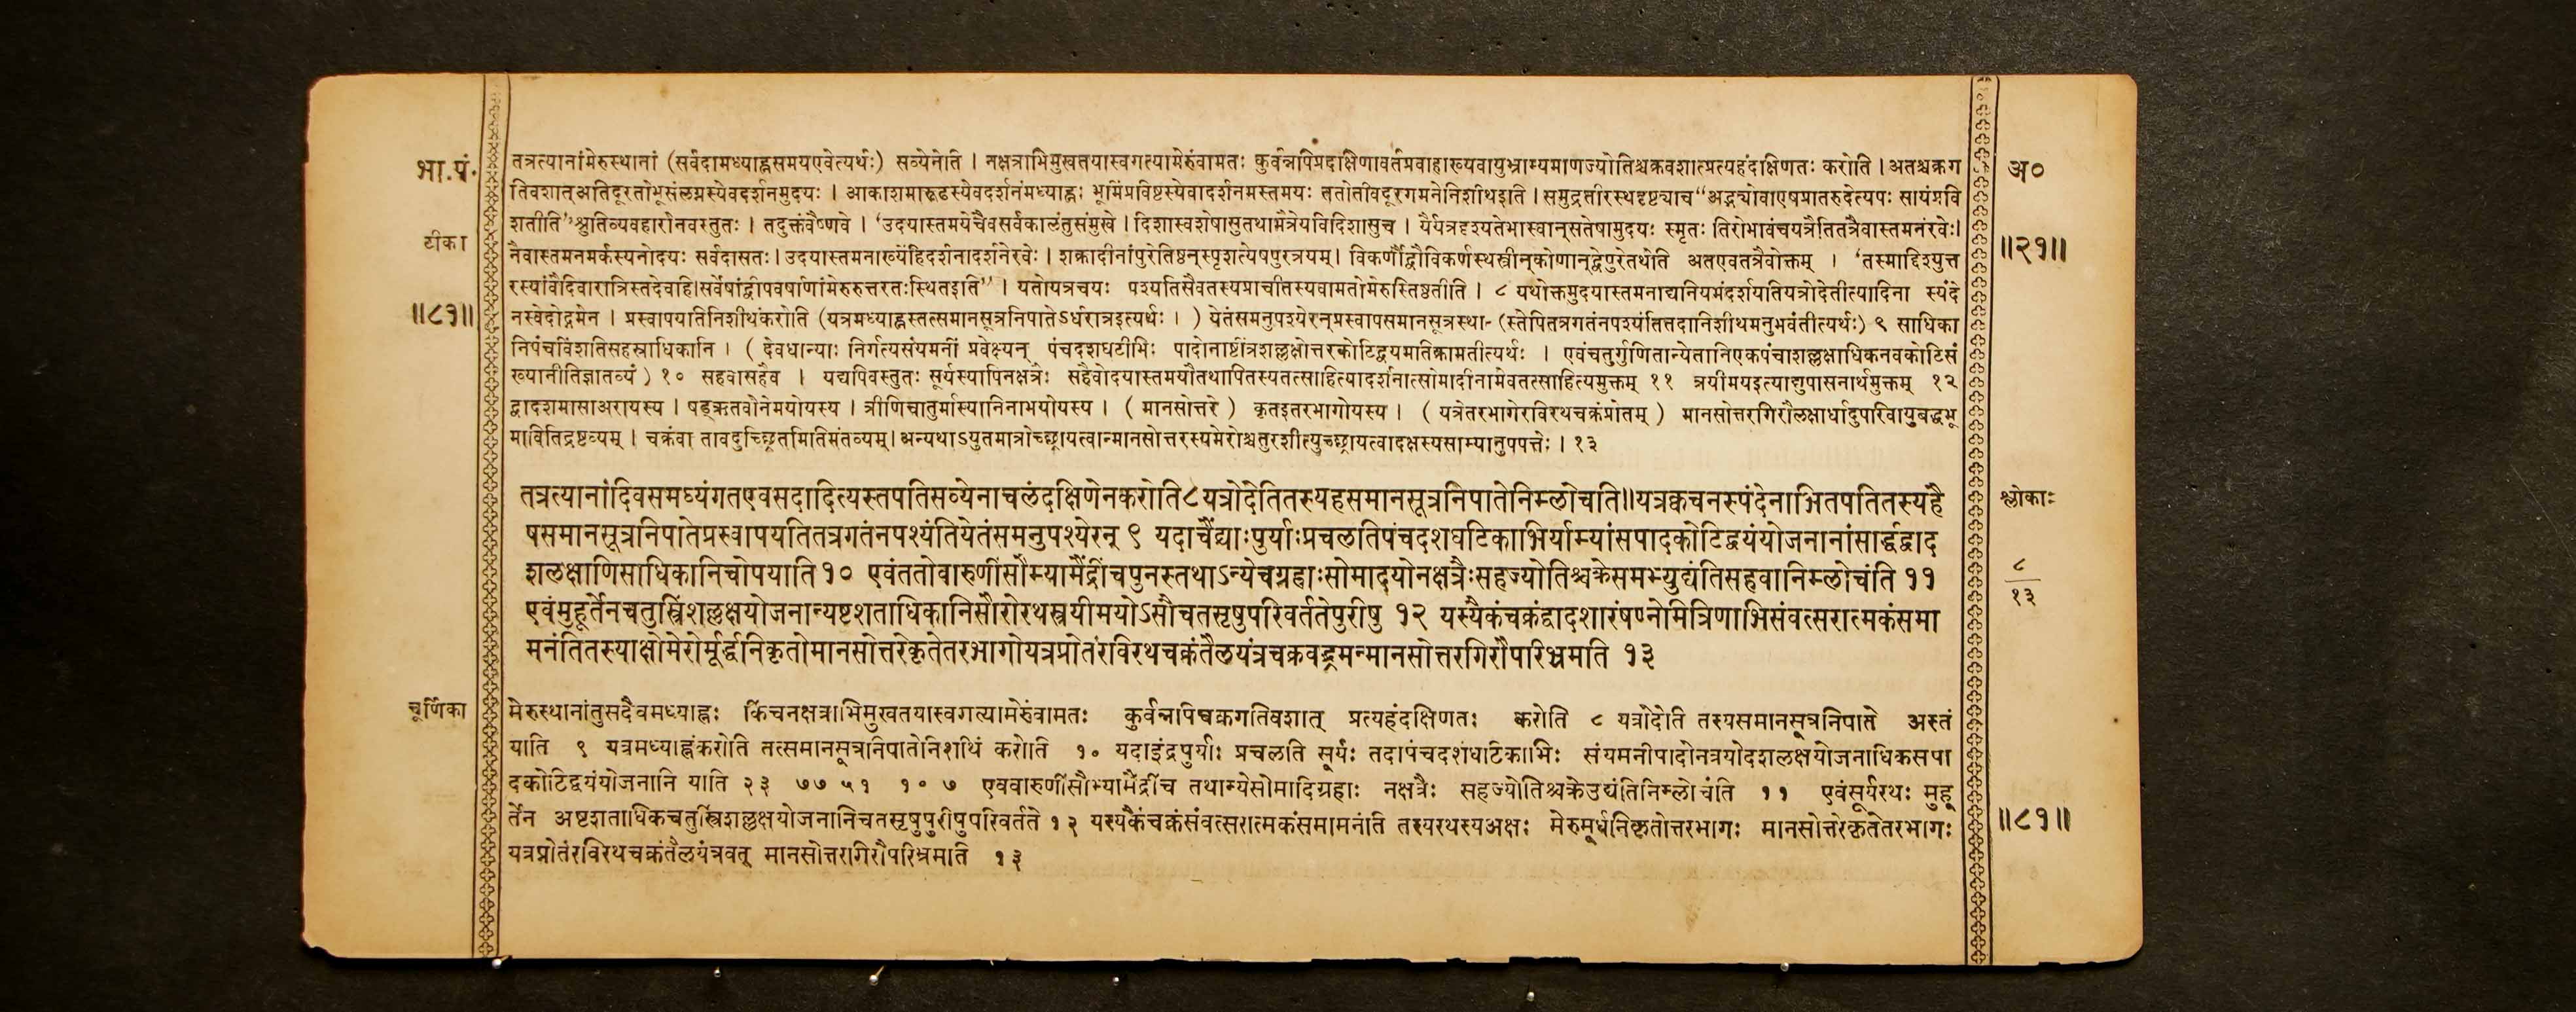 भा.पं.
टीका
॥८१॥
तत्रत्यानांमेरुस्थानां (सर्वदामध्याह्नसमयएवेत्यर्थः) सव्येनेति । नक्षत्राभिमुखतयास्वगत्यामेरुंवामतः कुर्वन्नपिप्रदक्षिणावर्तप्रवाहाख्यवायुभ्राम्यमाणज्योतिश्चक्रवशात्प्रत्यहंदक्षिणतः करोति । अतश्चक्रग
तिवशात् अतिदूरतोभूसंलग्नस्येवदर्शनमुदयः । आकाशमारूढस्येवदर्शनंमध्याह्नः भूमिंप्रविष्टस्येवादर्शनमस्तमयः ततोतीवदूरगमनेनिशीथइति । समुद्रतीरस्थदृष्ट्याच “अद्भ्योवाएषप्रातरुदेत्यपः सायंप्रवि
शतीति” श्रुतिव्यवहारोनवस्तुतः । तदुक्तंवैष्णवे । ‘उदयास्तमयेचैवसर्वकालंतुसंमुखे । दिशास्वशेषासुतथामैत्रेयविदिशासुच । यैर्यत्रदृश्यतेभास्वान्सतेषामुदयः स्मृतः तिरोभावंचयत्रैतितत्रैवास्तमनंरवेः।
नैवास्तमनमर्कस्यनोदयः सर्वदासतः। उदयास्तमनाख्येंहिदर्शनादर्शनेरवेः । शक्रादीनांपुरेतिष्ठन्स्पृशत्येषपुरत्रयम्। विकर्णौद्वौविकर्णस्थस्त्रीन्कोणान्द्वेपुरेतथेति अतएवतत्रैवोक्तम् । ‘तस्माद्दिश्युत्त
रस्यांवैदिवारात्रिस्तदेवाहि।सर्वेषांद्वीपवर्षाणांमेरुरुत्तरतःस्थितइति” । यतोयत्रचयः पश्यतिसैवतस्यप्राचीतस्यवामतोमेरुस्तिष्ठतीति । ८ यथोक्तमुदयास्तमनाद्यनियमंदर्शयतियत्रोदेतीत्यादिना स्यंदे
नस्वेदोद्गमेन । प्रस्वापयातिनिशीथंकरोति (यत्रमध्याह्नस्तत्समानसूत्रनिपातेऽर्धरात्रइत्यर्थः । ) येतंसमनुपश्येरन्प्रस्वापसमानसूत्रस्था- (स्तेपितत्रगतंनपश्यंतितदानिशीथमनुभवंतीत्यर्थः) ९ साधिका
निपंचविंशतिसहस्राधिकानि । ( देवधान्याः निर्गत्यसंयमनीं प्रवेक्ष्यन् पंचदशघटीभिः पादोनाष्टात्रिंशल्लक्षोत्तरकोटिद्वयमतिक्रामतीत्यर्थः । एवंचतुर्गुणितान्येतानिएकपंचाशल्लक्षाधिकनवकोटिसं
ख्यानीतिज्ञातव्यं ) १० सहवासहैव । यद्यपिवस्तुतः सूर्यस्यापिनक्षत्रैः सहैवोदयास्तमयौतथापितस्यतत्साहित्यादर्शनात्सोमादीनामेवतत्साहित्यमुक्तम् ११ त्रयीमयइत्याद्युपासनार्थमुक्तम् १२
द्वादशमासाअरायस्य । षड्ऋतवोनेमयोयस्य । त्रीणिचातुर्मास्यानिनाभयोयस्य । ( मानसोत्तरे ) कृतइतरभागोयस्य । ( यत्रेतरभागेरविरथचक्रंप्रोतम् ) मानसोत्तरगिरौलक्षार्धादुपरिवायुबद्धभू
मावितिद्रष्टव्यम् । चक्रंवा तावदुच्छ्रितमितिमंतव्यम्। अन्यथाऽयुतमात्रोच्छ्रायत्वान्मानसोत्तरस्यमेरोश्चतुरशीत्युच्छ्रायत्वादक्षस्यसाम्यानुपपत्तेः । १३
तत्रत्यानांदिवसमध्यंगतएवसदादित्यस्तपतिसव्येनाचलंदक्षिणेनकरोति८यत्रोदेतितस्यहसमानसूत्रनिपातोनिम्लोचति॥यत्रक्वचनस्पंदेनाभितपतितस्यहै
षसमानसूत्रनिपातेप्रस्वापयतितत्रगतंनपश्यंतियेतंसमनुपश्येरन् ९ यदाचैंद्र्याःपुर्याःप्रचलतिपंचदशघटिकाभिर्याम्यांसपादकोटिद्वयंयोजनानांसार्द्धद्वाद
शलक्षाणिसाधिकानिचोपयाति १० एवंततोवारुणींसौम्यामैंद्रींचपुनस्तथाऽन्येचग्रहाःसोमादयोनक्षत्रैःसहज्योतिश्चक्रेसमभ्युद्यंतिसहवानिम्लोचंति ११
एवंमुहूर्तेनचतुस्त्रिंशल्लक्षयोजनान्यष्टशताधिकानिसौरोरथस्त्रयीमयोऽसौचतसृषुपरिवर्ततेपुरीषु १२ यस्यैकंचक्रंद्वादशारंषण्नेमित्रिणाभिसंवत्सरात्मकंसमा
मनंतितस्याक्षोमेरोर्मूर्द्धनिकृतोमानसोत्तरेकृतेतरभागोयत्रप्रोतंरविरथचक्रंतैलयंत्रचक्रवद्भ्रमन्मानसोत्तरगिरौपरिभ्रमति १३
चूर्णिका
मेरुस्थानांतुसदैवमध्याह्नः किंचनक्षत्राभिमुखतयास्वगत्यामेरुंवामतः कुर्वन्नपिचक्रगतिवशात् प्रत्यहंदक्षिणतः करोति ८ यत्रोदेति तस्यसमानसूत्रनिपाते अस्तं
याति ९ यत्रमध्याह्नंकरोति तत्समानसूत्रनिपातोनिशीथं करोति १० यदाइंद्रपुर्याः प्रचलति सूर्यः तदापंचदशघटिकाभिः संयमनीपादोनत्रयोदशलक्षयोजनाधिकसपा
दकोटिद्वयंयोजनानि याति २३ ७७ ५१ १० ७ एववारुणींसौम्यामैंद्रींच तथान्येसोमादिग्रहाः नक्षत्रैः सहज्योतिश्चक्रेउद्यंतिनिम्लोचंति ११ एवंसूर्यरथः मुहू
र्तेन अष्टशताधिकचतुस्त्रिंशल्लक्षयोजनानिचतसृषुपुरीषुपरिवर्तते १२ यस्यैकंचक्रंसंवत्सरात्मकंसमामनंति तस्यरथस्यअक्षः मेरुमूर्धनिकृतोत्तरभागः मानसोत्तरेकृतेतरभागः
यत्रप्रोतंरविरथचक्रंतैलयंत्रवत् मानसोत्तरगिरौपरिभ्रमति १३
अ०
॥२१॥
श्लोकाः
८
१३
॥८१॥